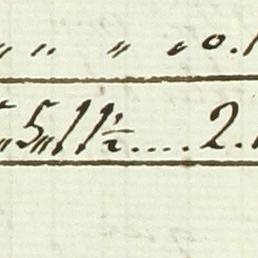 " " " " 0.1
" 5 " 11½ .... 2.